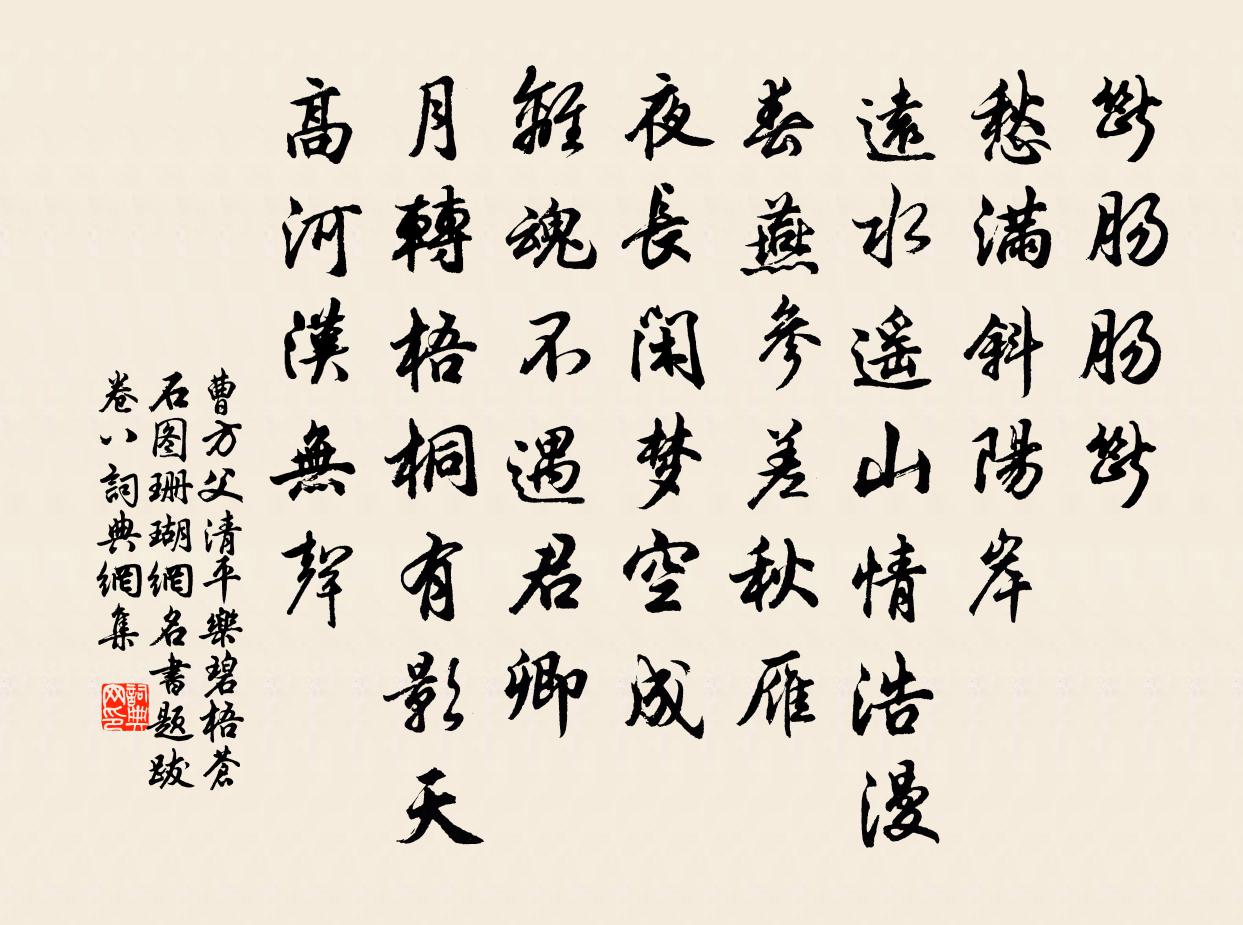 斷腸腸斷
愁滿斜陽岸
遠水遥山情浩漫
春燕參差秋雁
夜長闲梦空成
離魂不遇君卿
月轉梧桐有影天
高河漢無聲
曹方父清平樂碧梧蒼
石图珊瑚網名書题跋
卷八詞典網集
詞典网印